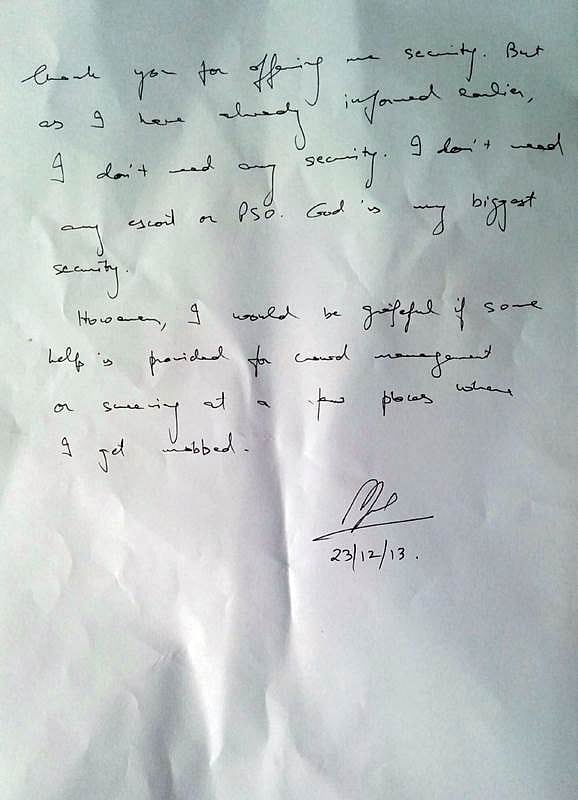 thank you for offering me security. But
as I have already informed earlier,
I don't need any security. I don't need
any escort or PSO. God is my biggest
security.
However, I would be grateful if some
help is provided for crowd management
or swearing at a few places where
I get mobbed.
23/12/13.